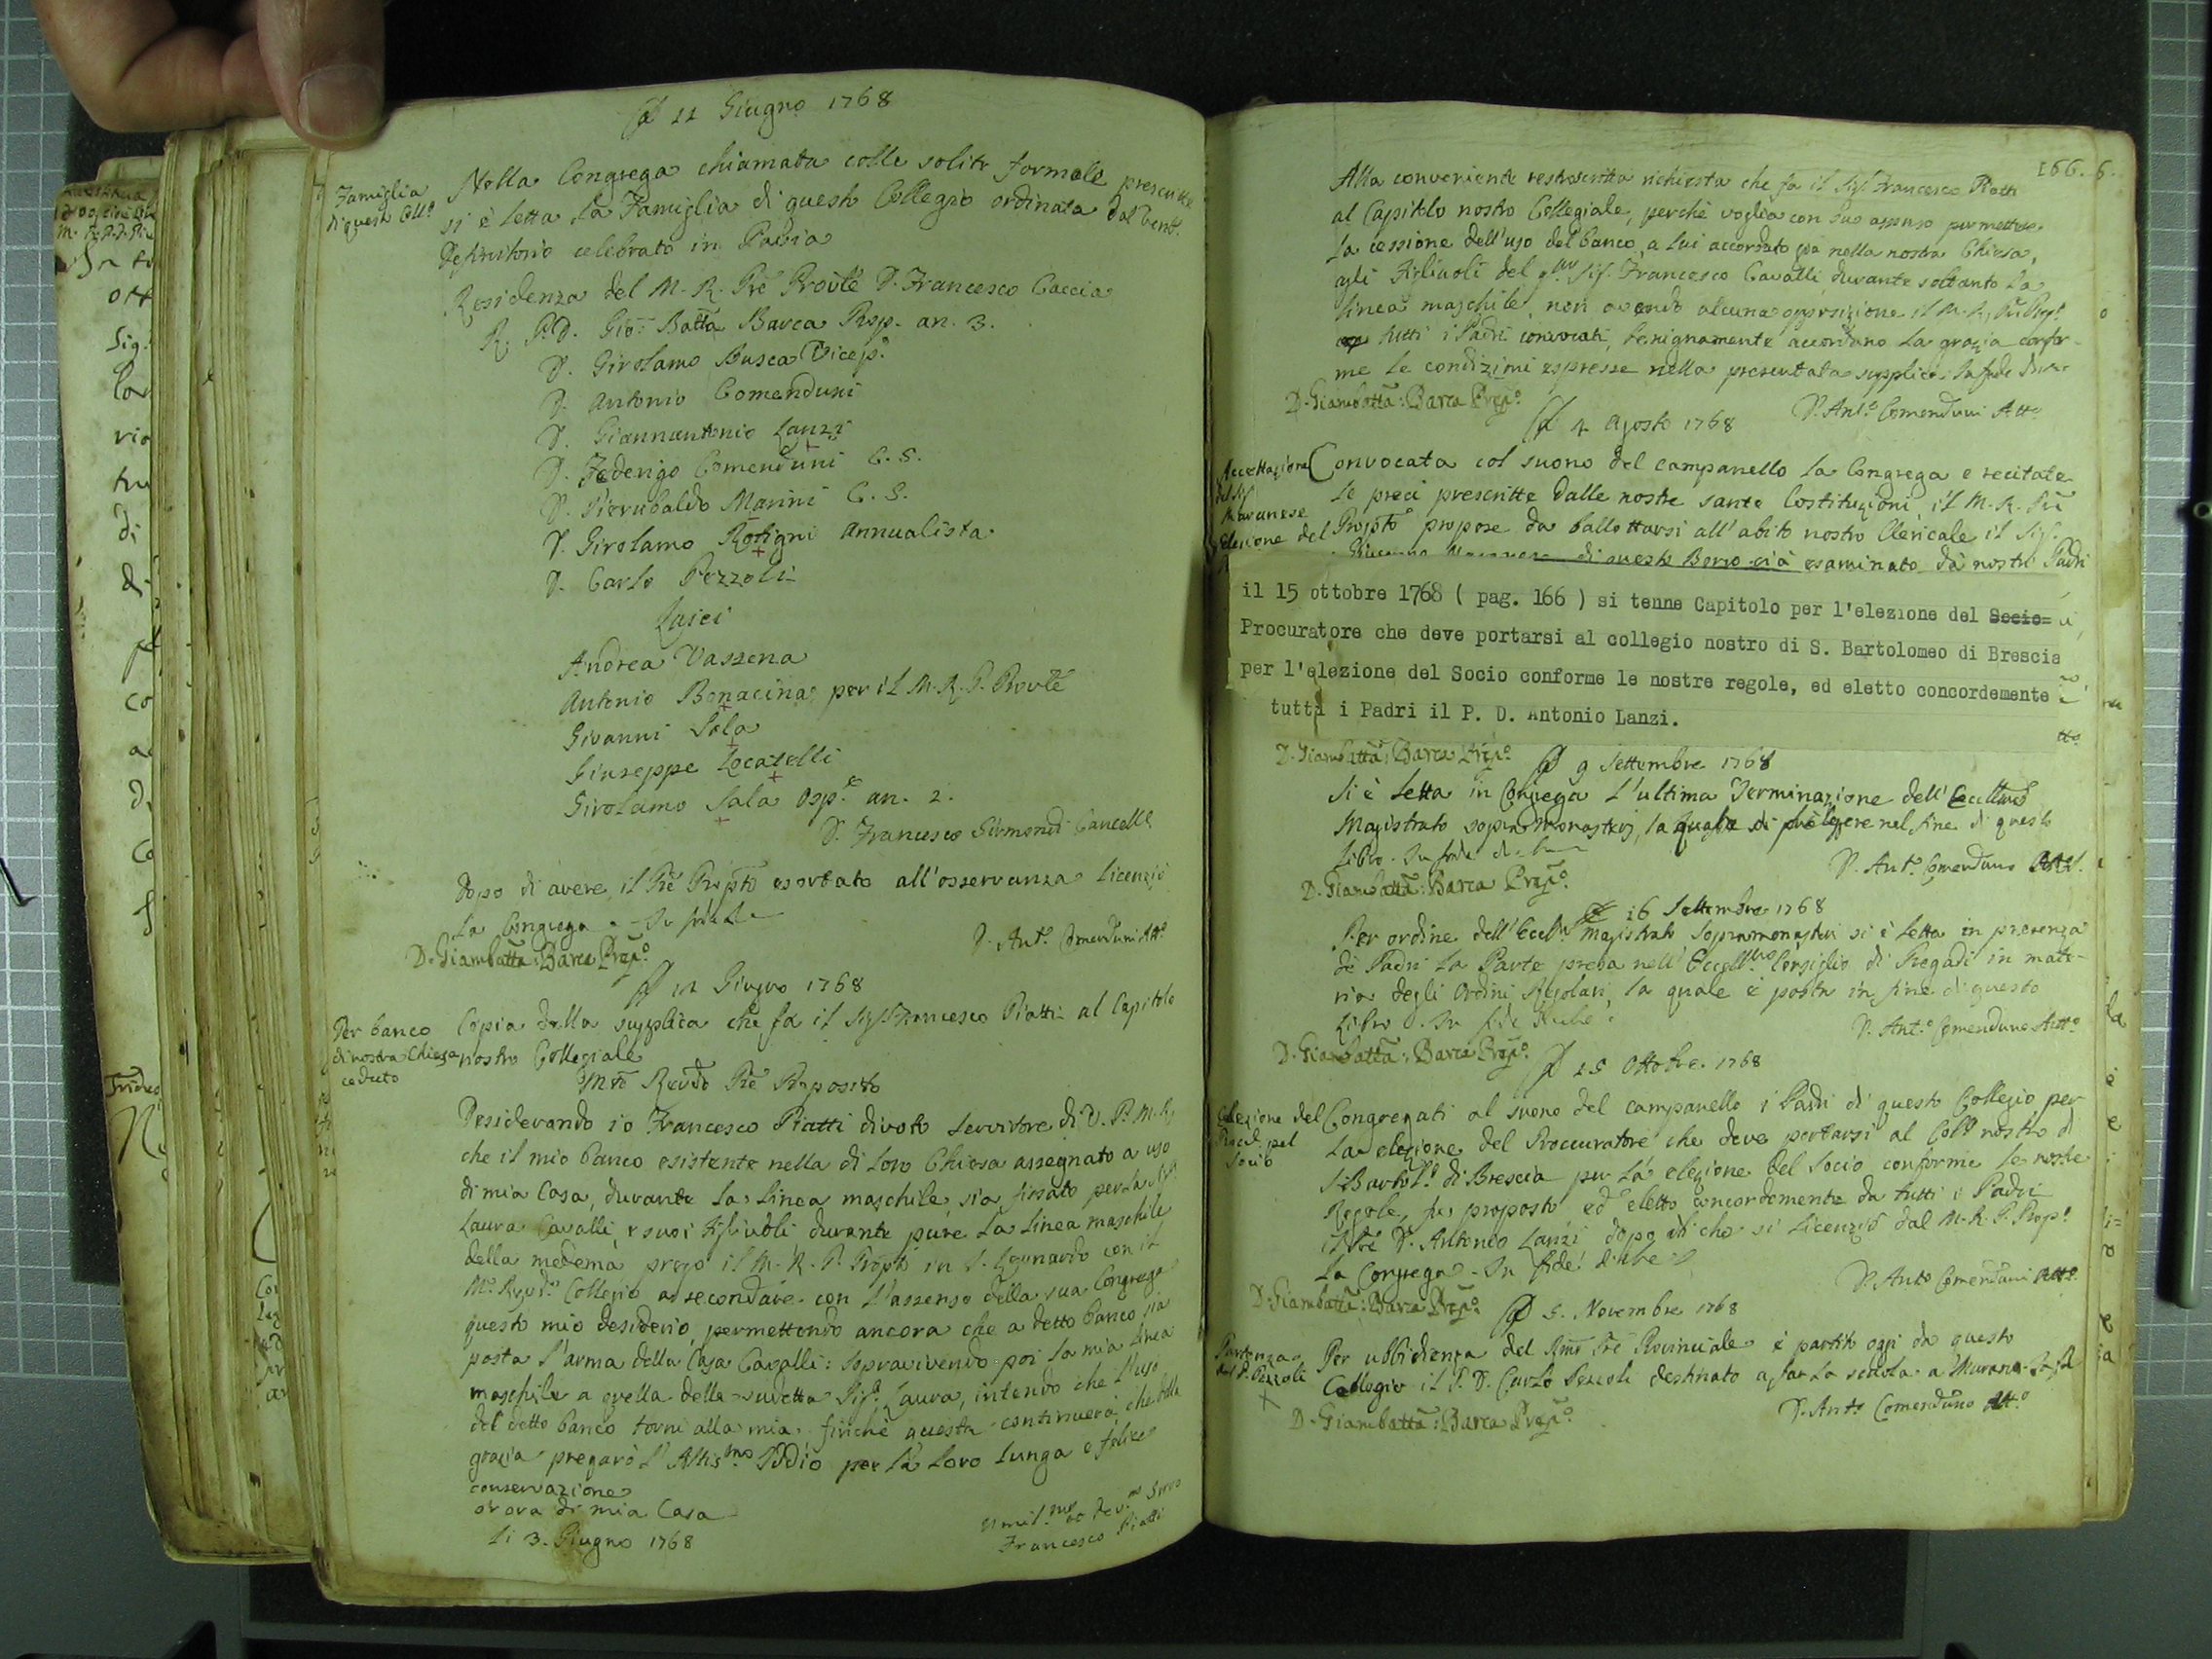 A 11 Giugno 1768
Famiglia
di questo Coll.o
Nella Congrega chiamata colle solite formole prescritte
si è letta la Famiglia di questo Collegio ordinata dal Vend.
Definitorio celebrato in Pavia
Residenza del M. R. Pre Provle D. Francesco Caccia
R. P. D. Gio: Batta Barca Prop. an. 3.
D. Girolamo Busca Vicep.o
D. Antonio Comenduni
D. Giannantonio Lanzi
D. Federigo Comenduni C. S.
D. Pierubaldo Marini C. S.
D. Girolamo Rotigni Annualista
D. Carlo Pezzoli
Laici
Andrea Vassena
Antonio Bonacina per il M. R. P. Provle
Givanni Sala
Giuseppe Locatelli
Girolamo Sala Osp.e an. 2.
D. Francesco Girmondi Cancell.e
Dopo di avere il Pre Preposto esortato all'osservanza licenziò
la Congrega. In fede
D. Ant.o Comenduni Att.o
D. Giambatta: Barca Prep.o
A 12 Giugno 1768
Per banco
di nostra Chiesa
ceduto
Copia della supplica che fa il Sig. Francesco Piatti al Capitolo
nostro Collegiale
Mto Revdo Pre Proposito
Desiderando io Francesco Piatti divoto servitore di V. P. M. R.
che il mio banco esistente nella di loro Chiesa assegnato a uso
di mia Casa, durante la linea maschile, sia fissato per la Sig.a
Laura Cavalli, e suoi Figliuoli durante pure la linea maschile
della medema prego il M. R. P. Propto in S. Leonardo con il
M. Revd.o Collegio a secondare con l'assenso della sua Congrega
questo mio desiderio, permettendo ancora che a detto banco sia
posta l'arma della Casa Cavalli: sopravivendo poi la mia linea
maschile a quella della sudetta Sig.a Laura, intendo che l'uso
del detto banco torni alla mia, finchè questa continuerà, che della
grazia pregarò l'Altis.mo Iddio per la loro lunga e felice
conservazione
di mia Casa
li 3. Giugno 1768
Umil.mo et dev.mo Servo
Francesco Piatti
166. 6.
Alla conveniente restroscritta richiesta che fa il Sig. Francesco Piatti
al Capitolo nostro Collegiale, perchè voglia con suo assenso permettere
la cessione dell'uso del banco, a lui accordato già nella nostra Chiesa,
agli Figliuoli del Sig. Francesco Cavalli, durante soltanto la
linea maschile, non avendo alcuna opposizione il M. R. Pre Prep.o
tutti i Padri convocati, benignamente accordano la grazia confor-
me le condizioni espresse nella presentata supplica. In fede
D. Giambatta: Barca Prep.o
D. Ant.o Comenduni Att.o
A 4 Agosto 1768
Accettazione
del Sig.
Mavanese
Elezione del
Convocata col suono del campanello la Congrega e recitate
le preci prescritte dalle nostre sante Costituzioni, il M. R. Pre
Propto propose da ballottarsi all'abito nostro Clericale il Sig.
di questo Borgo già esaminato da nostri Padri
il 15 ottobre 1768 ( pag. 166 ) si tenne Capitolo per l'elezione del Socio=
Procuratore che deve portarsi al collegio nostro di S. Bartolomeo di Brescia
per l'elezione del Socio conforme le nostre regole, ed eletto concordemente
tutti i Padri il P. D. Antonio Lanzi.
D. Giambatta: Barca Prep.o
A 9 Settembre 1768
Si è letta in Congrega l'ultima Terminazione dell'Eccell.mo
Magistrato sopra Monasterj, la quale si può legere nel fine di questo
Libro. In fede
D. Ant.o Comenduno Att.o
D. Giambatta: Barca Prep.o
A 16 Settembre 1768
Per ordine dell'Eccell.mo Magistrato Sopramonasteri si è letta in presenza
de Padri la Parte presa nell'Eccell.mo Consiglio di Pregadi in mate-
ria degli Ordini Regolari, la quale è posta in fine di questo
Libro. In fede
D. Ant.o Comenduno Att.o
D. Giambatta: Barca Prep.o
A 15 Ottobre. 1768
Elezione del
Procu.e pel
Socio
Congregati al suono del campanello i Padri di questo Collegio per
la elezione del Proccuratore che deve portarsi al Coll.o nostro di
S. Bartol.o di Brescia per la elezione del Socio conforme le nostre
Regole, fu proposto ed eletto concordemente da tutti i Padri
il Pre D. Antonio Lanzi dopo di che si licenziò dal M. R. P. Prop.o
la Congrega. In fede
D. Ant.o Comenduni Att.o
D. Giambatta: Barca Prep.o
A 5. Novembre 1768
Partenza
del P. Pezzoli
Per ubbidienza del Rmo Pre Provinciale è partito oggi da questo
Collegio il P. D. Carlo Pezzoli destinato a far la scuola a Murano. In fe
D. Ant.o Comenduno Att.o
D. Giambatta: Barca Prep.o